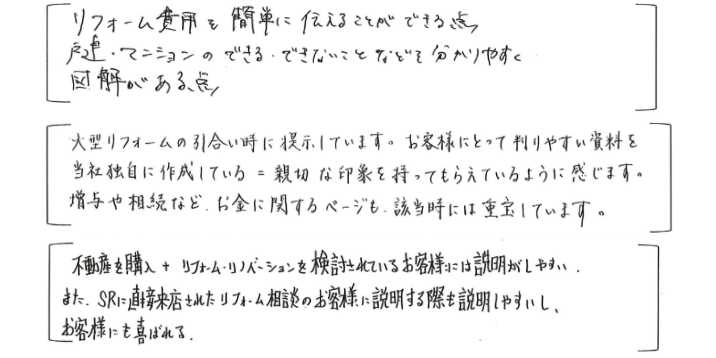 リフォーム費用を簡単に伝えることができる点
戸建・マンションのできる・できないことなどを分かりやすく
図解がある点
大型リフォームの引合い時に提示しています。お客様にとって判りやすい資料を
当社独自に作成している=親切な印象を持ってもらえているように感じます。
贈与や相続など、お金に関するページも、該当時には重宝しています。
不動産を購入+リフォーム・リノベーションを検討されているお客様には説明がしやすい。
また、SRに直接来店されたリフォーム相談のお客様に説明する際も説明しやすいし、
お客様にも喜ばれる。